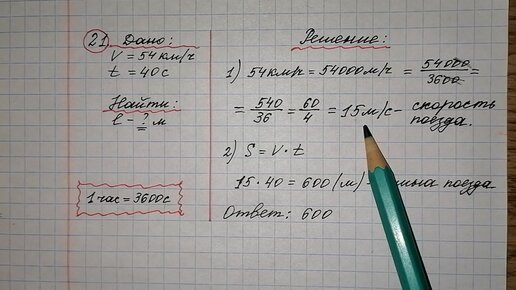 21 Дано:
V = 54 км/ч
t = 40 с
Найти:
ℓ - ? м
1 час = 3600 с
Решение:
1) 54 км/ч = 54000 м/ч = 54000/3600 =
= 540/36 = 60/4 = 15 м/с - скорость
поезда.
2) S = V · t
15 · 40 = 600 (м) - поезда
Ответ: 600